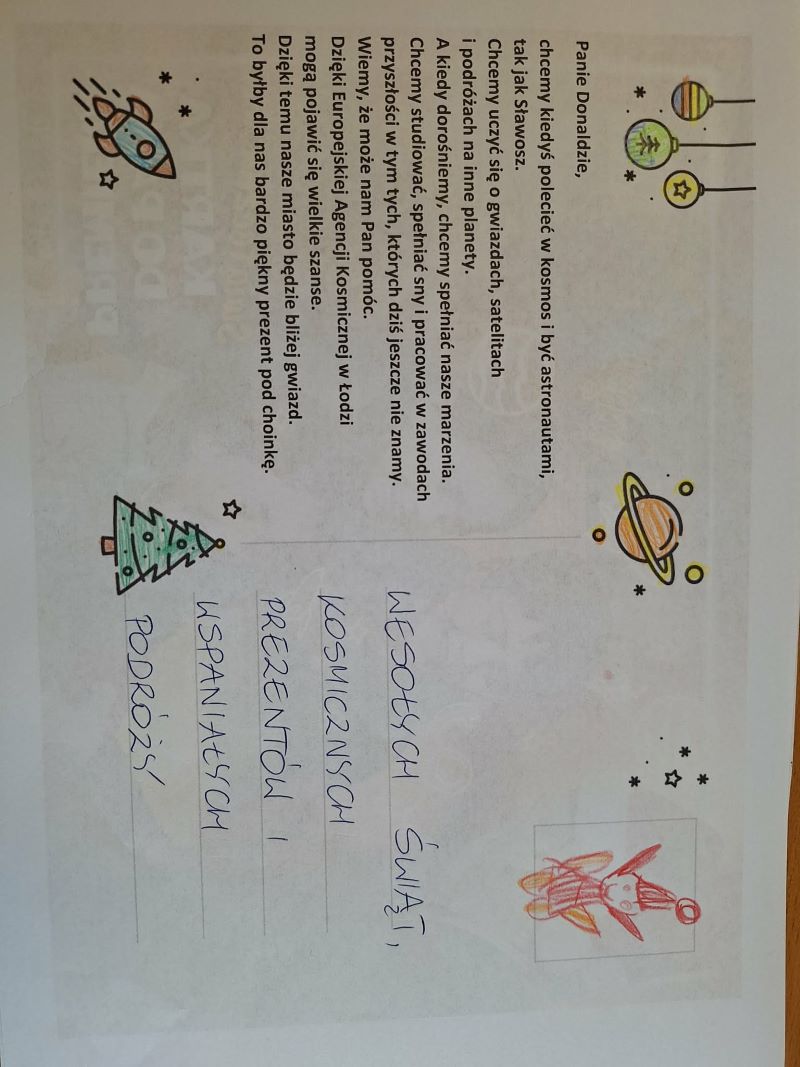 Panie Donaldzie,
chcemy kiedyś polecieć w kosmos i być astronautami,
tak jak Sławosz.
Chcemy uczyć się o gwiazdach, satelitach
i podróżach na inne planety.
A kiedy dorośniemy, chcemy spełniać nasze marzenia.
Chcemy studiować, spełniać sny i pracować w zawodach
przyszłości w tym tych, których dziś jeszcze nie znamy.
Wiemy, że może nam Pan pomóc.
Dzięki Europejskiej Agencji Kosmicznej w Łodzi
mogą pojawić się wielkie szanse.
Dzięki temu nasze miasto będzie bliżej gwiazd.
To byłby dla nas bardzo piękny prezent pod choinkę.
WESOŁYCH ŚWIĄT,
KOSMICZNYCH
PREZENTÓW I
WSPANIAŁYCH
PODRÓŻY